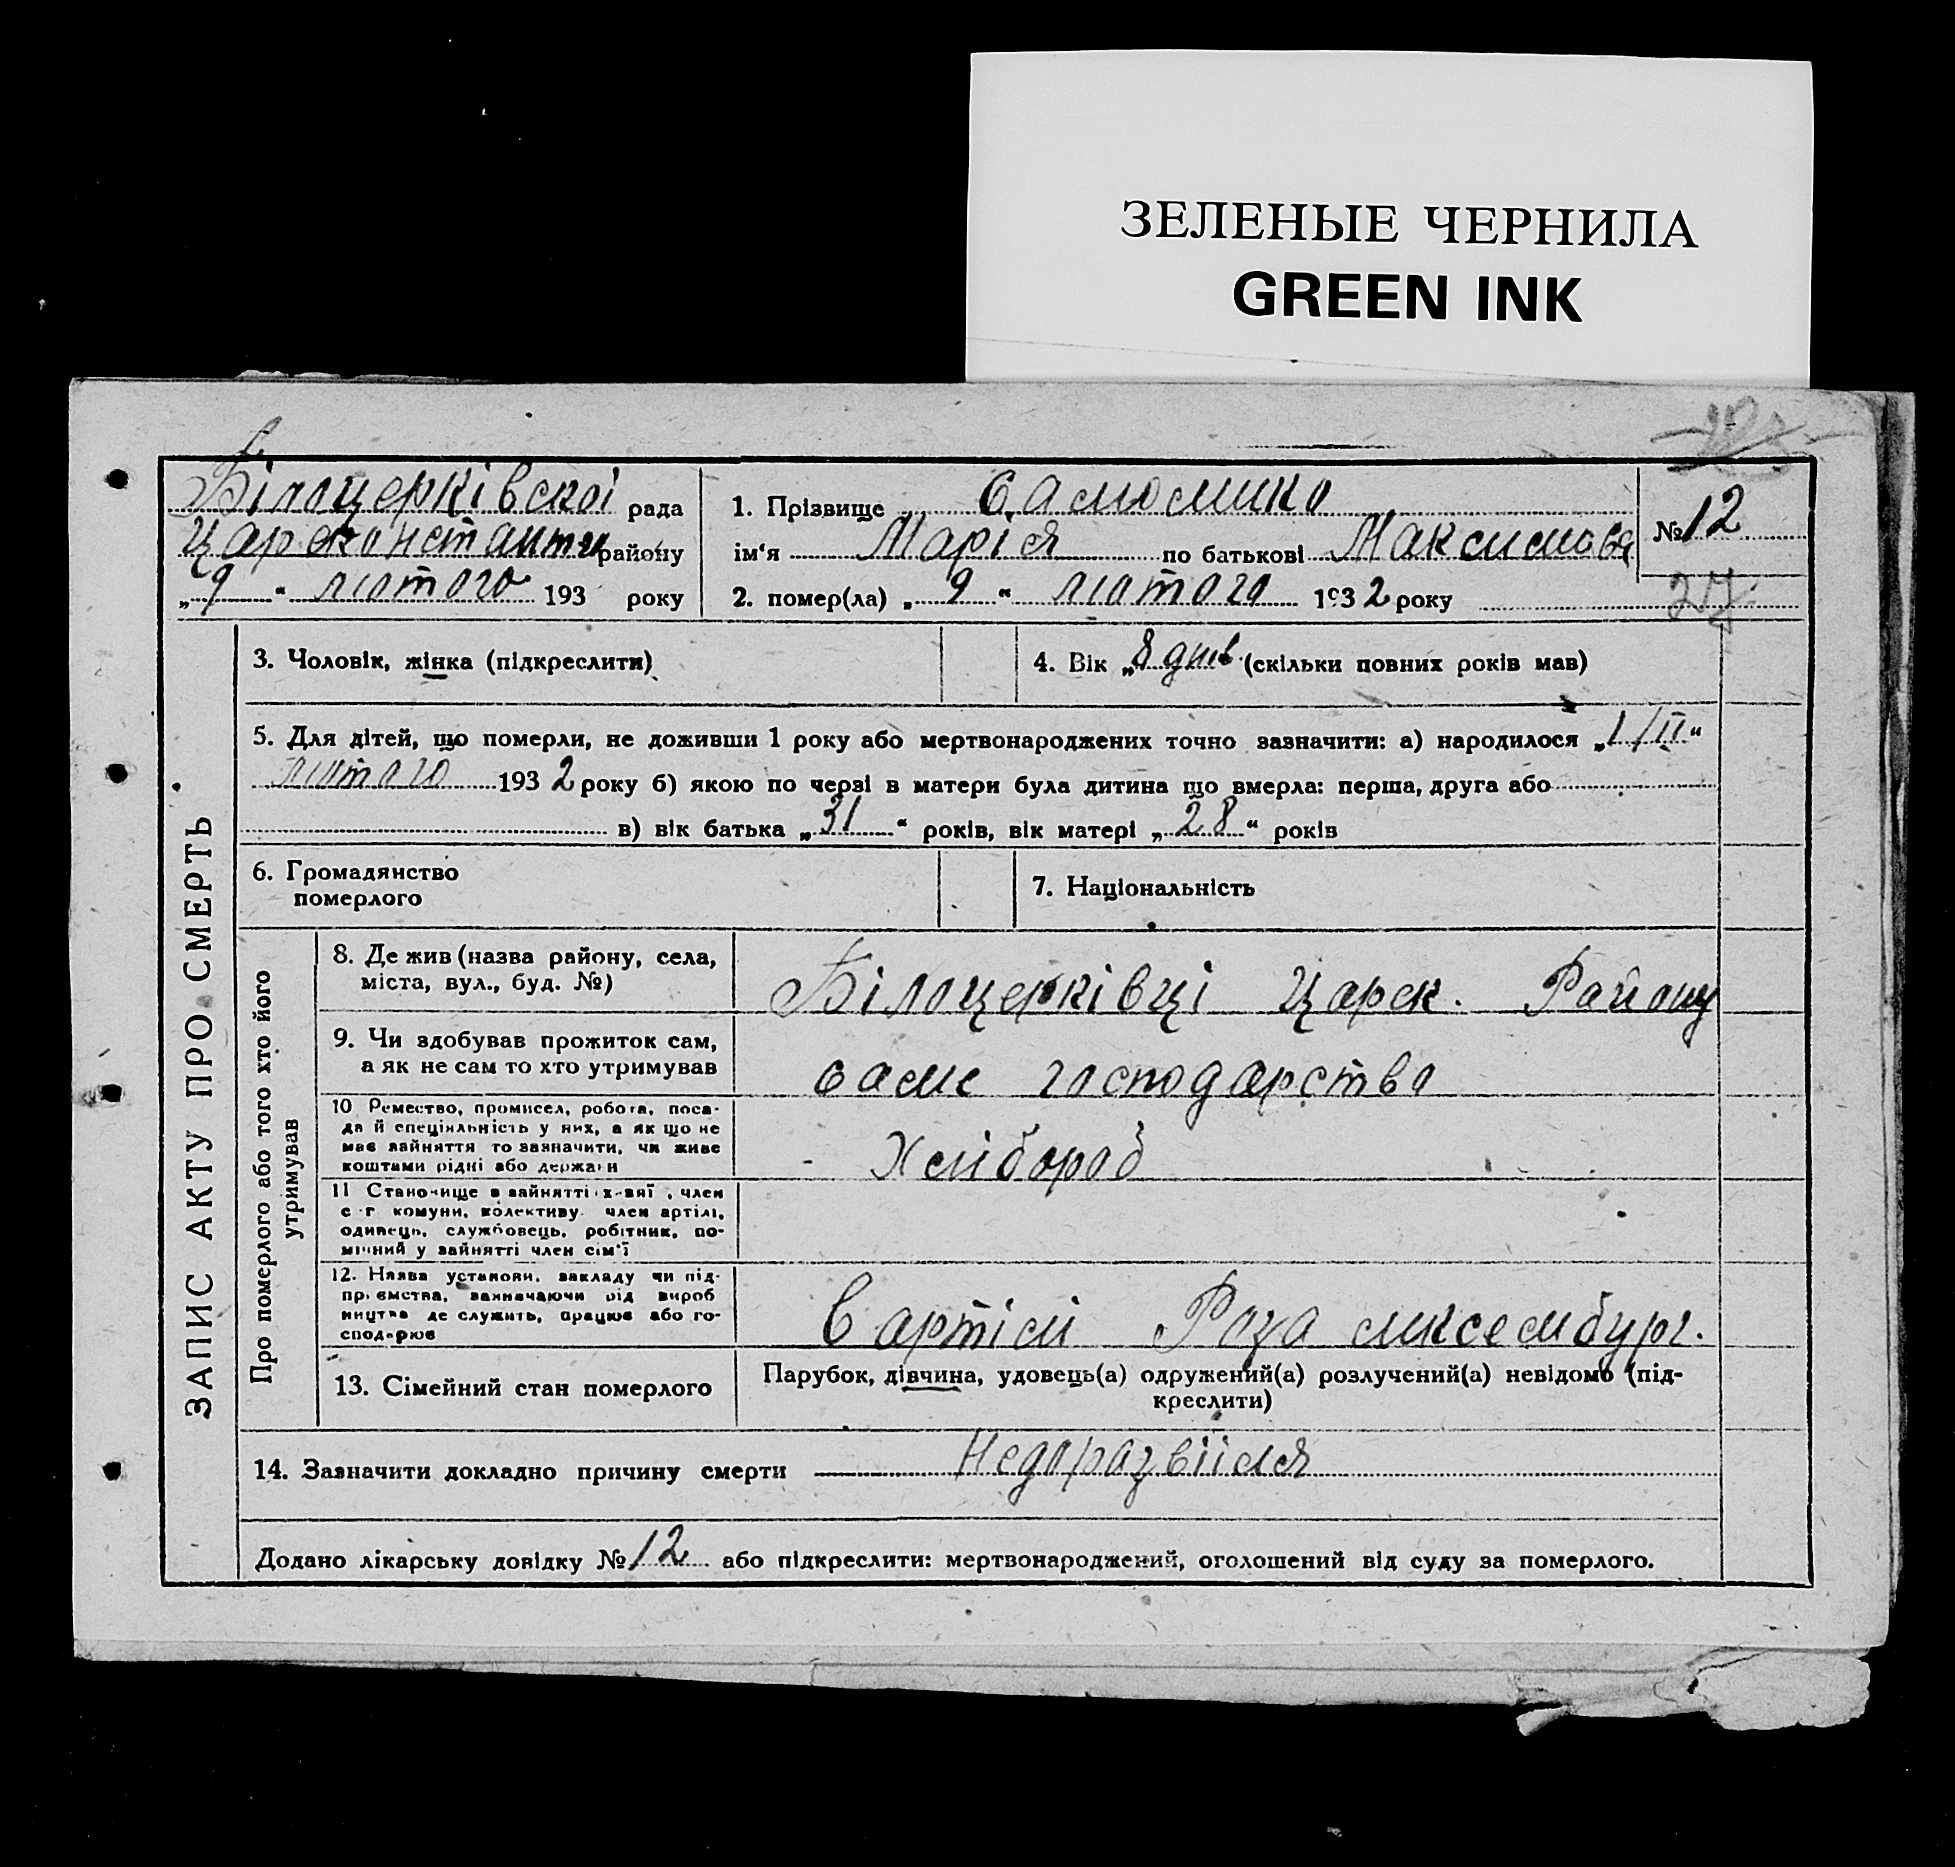 ЗЕЛЕНЫЕ ЧЕРНИЛА
GREEN INK
Білоцерківскої рада
Царськонстанти району
„ 9 “ лютого 193 року
1. Прізвище
ім‘я Марія по батькові Максимовя
2. помер(ла) „ 9 “ лютого 1932 року
№ 12
27
ЗАПИС АКТУ ПРО СМЕРТЬ
3. Чоловік, жінка (підкреслити)
4. Вік „ 8 днів (скільки повних років мав)
5. Для дітей, що померли, не доживши 1 року або мертвонароджених точно зазначити: а) народилося „ 1/II “
лютого 1932 року б) якою по черзі в матери була дитина що вмерла: перша, друга або
в) вік батька „ 31 “ років, вік матері „ 28 “ років
6. Громадянство
померлого
7. Національність
Про померлого або того хто його
утримував
8. Де жив (назва району, села,
міста, вул., буд. №)
Білоцерківці Царск. Району
9. Чи здобував прожиток сам,
а як не сам то хто утримував
саме господарство
10 Ремество, промисел, робота, поса-
да й спеціяльність у них, а як що не
має зайняття то зазначити, чи живе
коштами рідні або держави
Хлібороб
11 Становище в зайнятті х-взяї , член
с-г комуни, колективу член артілі,
одинець, службовець, робітник, по-
мічний у зайнятті член сім‘ї
12. Назва установи, закладу чи під-
приємства, зазначаючи рід вироб
ництва де служить, працює або го-
сподарює
В артілі Роза люксембург.
13. Сімейний стан померлого
Парубок, дівчина, удовець(а) одружений(а) розлучений(а) невідомо (під-
креслити)
14. Зазначити докладно причину смерти
Додано лікарську довідку № 12 або підкреслити: мертвонароджений, оголошений від суду за померлого.